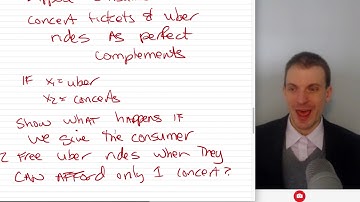 concert tickets & uber
rides as perfect
complements
IF x₁ = uber
x₂ = concerts
Show what happens IF
we give the consumer
2 free uber rides when they
CAN AFFORD only 1 concert?